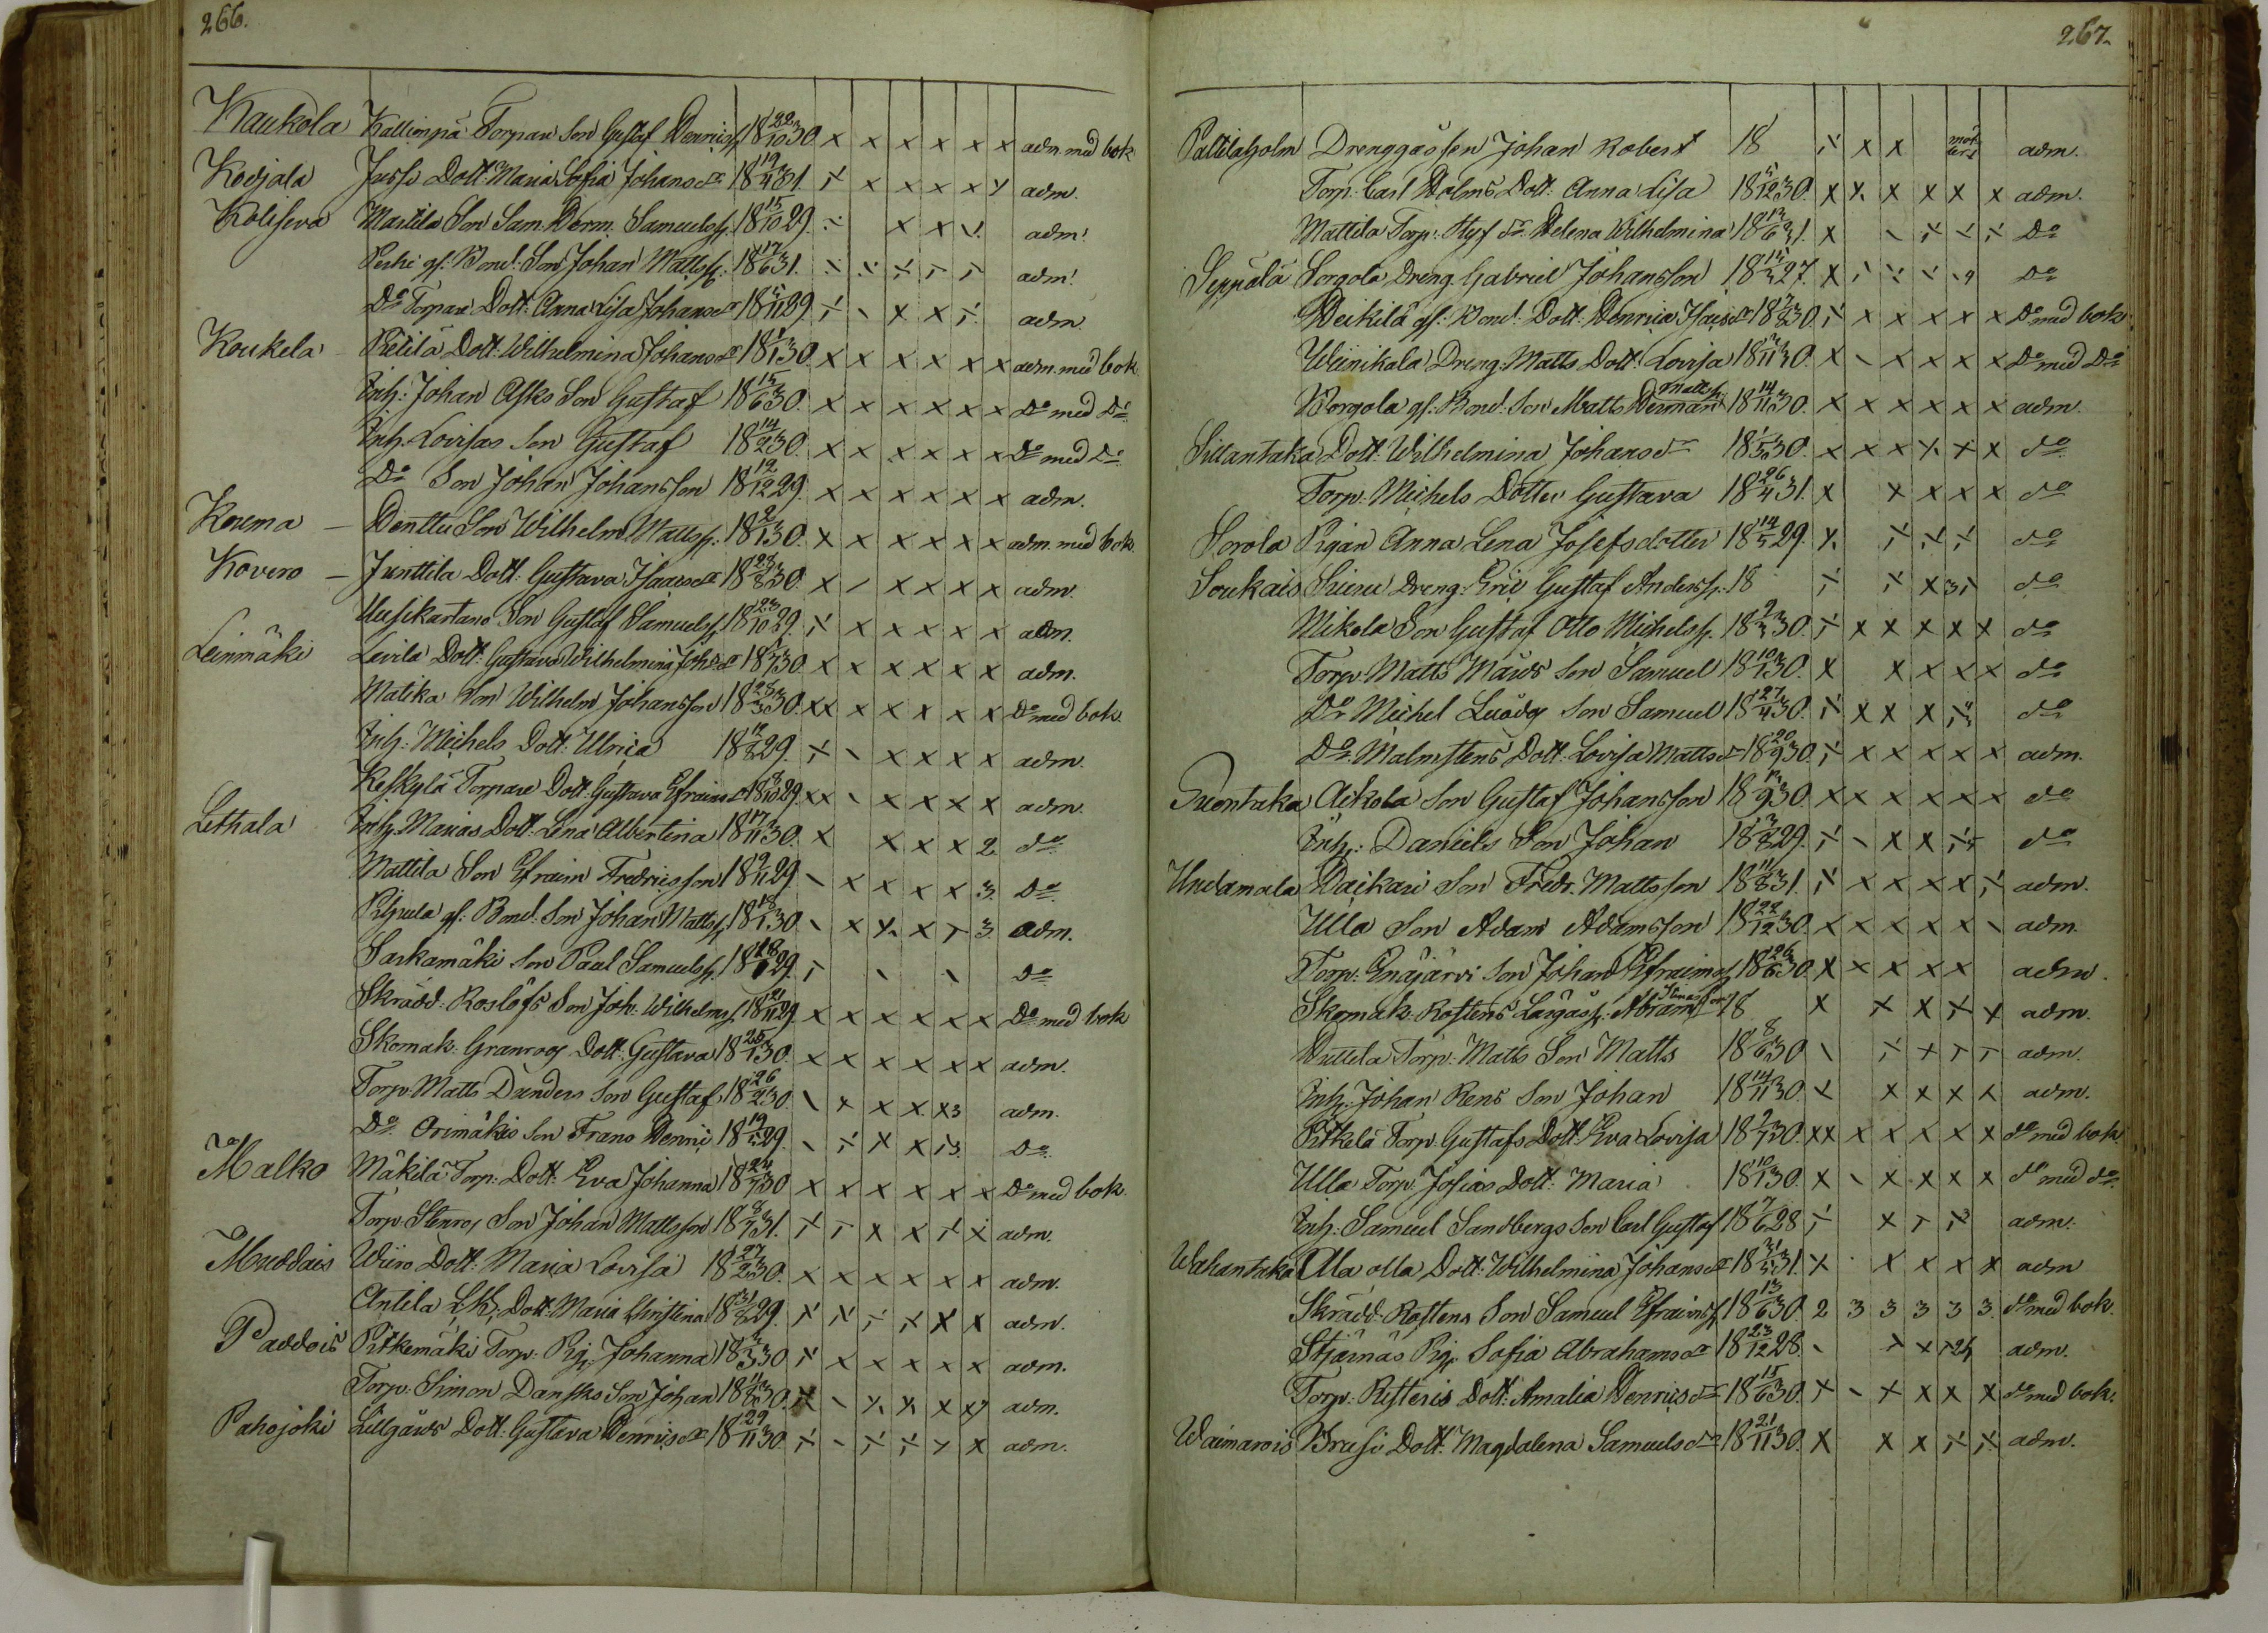 266.
Kaukola Kallionpä Torpare Son Gustaf Henricss. 18 22/10 30. x x x x x x adm. med bok
Kodjala Jussi Dott. Maria Sofia Johansdr 18 19/4 31. x x x x x adm.
Koliseva Mattila Son Sam. Herm. Samuelss. 18 15/10 29. x x adm.
gl. Bond. Son Johan Mattss. 18 17/6 31. adm.
Do Torpare Dott. Anna Lisa Johansdr 18 5/11 29 x x adm.
Koukela Pietilä Dott. Wilhelmina Johansdr 18 /1 30. x x x x x x adm. med bok
Inh: Johan Asks Son Gustaf 18 15/6 30. x x x x x x Do med Do
Inh. Lovisas Son Gustaf 18 14/2 30. x x x x x x Do med Do
Do Son Johan Johansson 18 12/12 29. x x x x x x adm.
Kouma — Henttu Son Wilhelm Mattss. 18 2/1 30. x x x x x x adm. med bok
Kovero — Junttila Dott. Gustava Isaacsdr 18 28/8 30. x x x x x adm.
Uusikartano Son Gustaf Samuelss. 18 23/10 29. x x x x x x adm.
Leinmäki Levilä Dott. Gustava Wilhelmina Johsdr 18 /7 30. x x x x x x adm.
Matika Son Wilhelm Johansson 18 28/3 30. xx x x x x x Do med bok.
Inh: Michels Dott: Ulrica 18 12/8 29. x x x x adm.
Keskylä Torpare Dott. Gustava Efraimsdr 18 /10 29. xx x x x x adm.
Lethala Inh. Marias Dott. Lena Albertina 18 17/11 30. x x x x 2. do
Mattila Son Efraim Fredricsson 18 9/11 29 x x x x 3. Do
gl. Bond. Son Johan Mattss. 18 18/1 30. x x x 3. adm.
Sarkamäki Son Paul Samuelss. 18 18/ 29. Do
Skrädd: Roslöfs Son Joh. Wilhelms 18 21/11 29. x x x x x x Do med bok
Skomak: Granroos Dott. Gustava 18 25/1 30. x x x x x x adm.
Torp. Matts Danders Son Gustaf 18 26/2 30. x x x x3 adm.
Do Orimäkis Son Frans Henric 18 19/5 29. x x 3. Do
Malko Mäkilä Torp: Dott. Eva Johanna 18 24/7 30 x x x x x x Do med bok.
Torp. Stenros Son Johan Mattsson 18 8/7 31. x x adm.
Muddais Wiiro Dott. Maria Lovisa 18 27/2 30. x x x x x x adm.
Antila Dott. Maria Christina 18 31/8 29. x x adm.
Paddois Pitkemäki Torp. Pig. Johanna 18 /3 30 x x x x x adm.
Torp. Simon Dansks Son Johan 18 11/8 30. x adm.
Pahojoki Lillgårds Dott. Gustava Henricsdr 18 29/11 30. x adm.
267.
Paltilaholm Drenggåssen Johan Robert 18 x x adm.
Torp. Carl Holms Dott. Anna Lisa 18 5/12 30. x x x x x x adm.
Mattila Torp. dr Helena Wilhelmina 18 13/6 31. x Do
Seppälä Sorgola Dreng. Gabriel Johansson 18 27. x Do
Heikilä gl. Bond. Dott. Henrica Isacsdr 18 7/8 30. x x x x x Do med bok
Wiinikala Dreng. Matts Dott. Lovisa 18 /11 30. x x x x x Do med Do
Borgola gl. Bond. Son Matts Herman Mattss. 18 14/11 30. x x x x x x adm.
Sillantaka Dott. Wilhelmina Johansdr 18 1/5 30. x x x x x x do
Torp. Michels Dotter Gustava 18 26/4 31. x x x x x do
Sorola Pigan Anna Lena Josefsdotter 18 29. x do
Soukais Dreng. Eric Gustaf Anderss. 18 x 3 do
Mikola Son Gustaf Otto Michelss. 18 2/3 30. x x x x x do
Torp. Matts Mäurs Son Samuel 18 10/1 30. x x x x x do
Do Michel Son Samuel 18 27/4 30. x x x do
Do Malmstens Dott. Lovisa Mattsdr 18 20/9 30. x x x x x adm.
Suontaka Aikola Son Gustaf Johansson 18 12/9 30. x x x x x x do
Inh: Daniels Son Johan 18 3/8 29. x x do
Undamala Haikari Son Fredr. Mattsson 18 11/8 31. x x x x adm.
Ulla Son Adam Adamsson 18 22/12 30. x x x x x adm.
Torp. Enäjärvi Son Johan Efraims. 18 26/6 30. x x x x x adm.
Skomak. Rostens Lärgåss. Abram 18 x x x x x adm.
Huttela Torp. Matts Son Matts 18 8/6 30 adm.
Inh. Johan Rens Son Johan 18 14/11 30. x x x x x adm.
Pitkelä Torp. Gustafs Dott. Eva Lovisa 18 2/7 30. xx x x x x x do med bok
Ulla Torp. Josias Dott. Maria 18 10/1 30. x x x x x do med do
Inh: Samuel Sandbergs Son Carl Gustaf 18 7/6 28 x adm.
Wahantaka Alla olla Dott. Wilhelmina Johansdr 18 31/5 31. x x x x x adm
Skrädd. Rostens Son Samuel Efraimss. 18 13/6 30. 2 3 3 3 3 3. do med bok.
Stjärnäs Pig. Sofia Abrahamsdr 18 23/12 28. x x adm.
Torp: Risteris Dott. Amalia Henricsdr 18 15/6 30. x x x x x do med bok.
Waimarois Brusi Dott. Magdalena Samuelsdr 18 21/11 30. x x x adm.